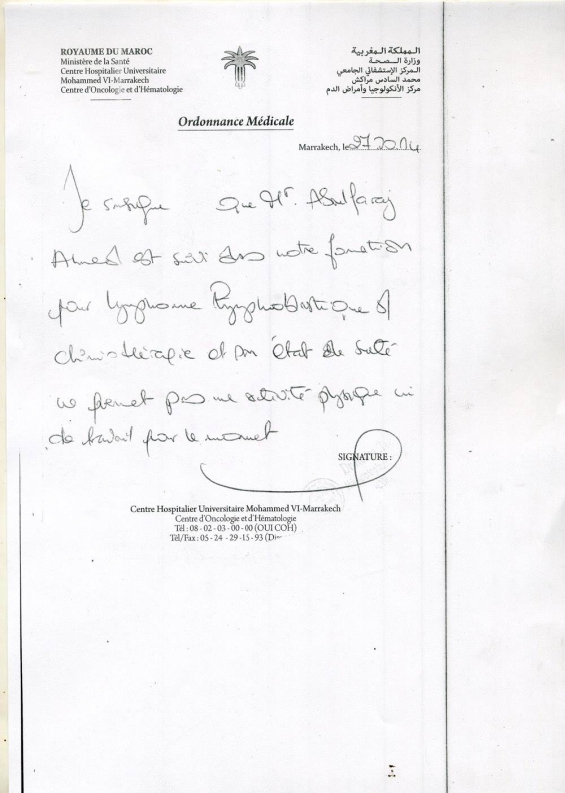 ROYAUME DU MAROC
Ministère de la Santé
Centre Hospitalier Universitaire
Mohammed VI-Marrakech
Centre d'Oncologie et d'Hématologie
المملكة المغربية
وزارة الصحة
المركز الإستشفائي الجامعي
محمد السادس مراكش
مركز الأنكولوجيا وأمراض الدم
Ordonnance Médicale
Marrakech, le
Je que Mr. Aboulfaraj
Ahmed est suivi dans notre formation
pour lymphome lymphoblastique
chimiothérapie et son état de santé
ne permet pas une activité physique ni
de travail pour le moment
SIGNATURE :
Centre Hospitalier Universitaire Mohammed VI-Marrakech
Centre d'Oncologie et d'Hématologie
Tél : 08 - 02 - 03 - 00 - 00 (OUI COH)
Tél/Fax : 05 - 24 - 29 - 15 - 93